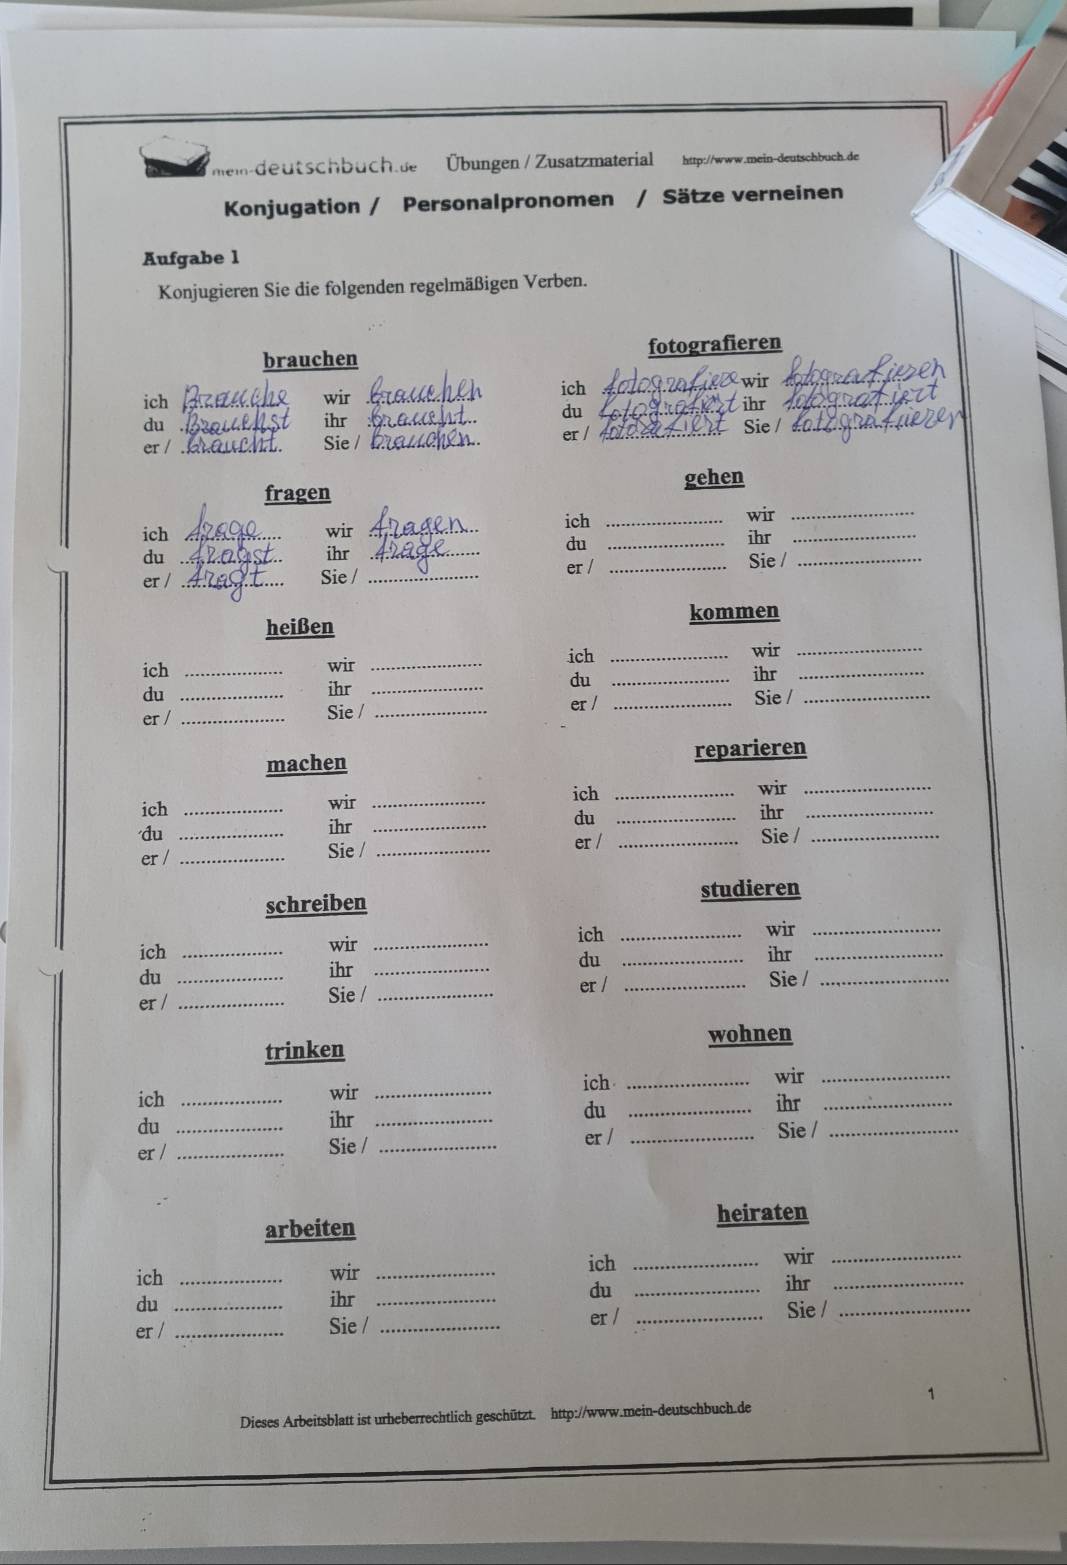 mein-deutschbuch.de Übungen / Zusatzmaterial http://www.mein-deutschbuch.de
Konjugation / Personalpronomen / Sätze verneinen
Aufgabe 1
Konjugieren Sie die folgenden regelmäßigen Verben.
brauchen
ich Brauche wir brauchen
du Brauchst ihr braucht
er / braucht Sie / brauchen
fotografieren
ich fotografiere wir fotografieren
du fotografierst ihr fotografiert
er / Sie / fotografieren
fragen
ich frage wir fragen
du fragst ihr frage
er / fragt Sie /
gehen
ich wir
du ihr
er / Sie /
heißen
ich wir
du ihr
er / Sie /
kommen
ich wir
du ihr
er / Sie /
machen
ich wir
du ihr
er / Sie /
reparieren
ich wir
du ihr
er / Sie /
schreiben
ich wir
du ihr
er / Sie /
studieren
ich wir
du ihr
er / Sie /
trinken
ich wir
du ihr
er / Sie /
wohnen
ich wir
du ihr
er / Sie /
arbeiten
ich wir
du ihr
er / Sie /
heiraten
ich wir
du ihr
er / Sie /
1
Dieses Arbeitsblatt ist urheberrechtlich geschützt. http://www.mein-deutschbuch.de